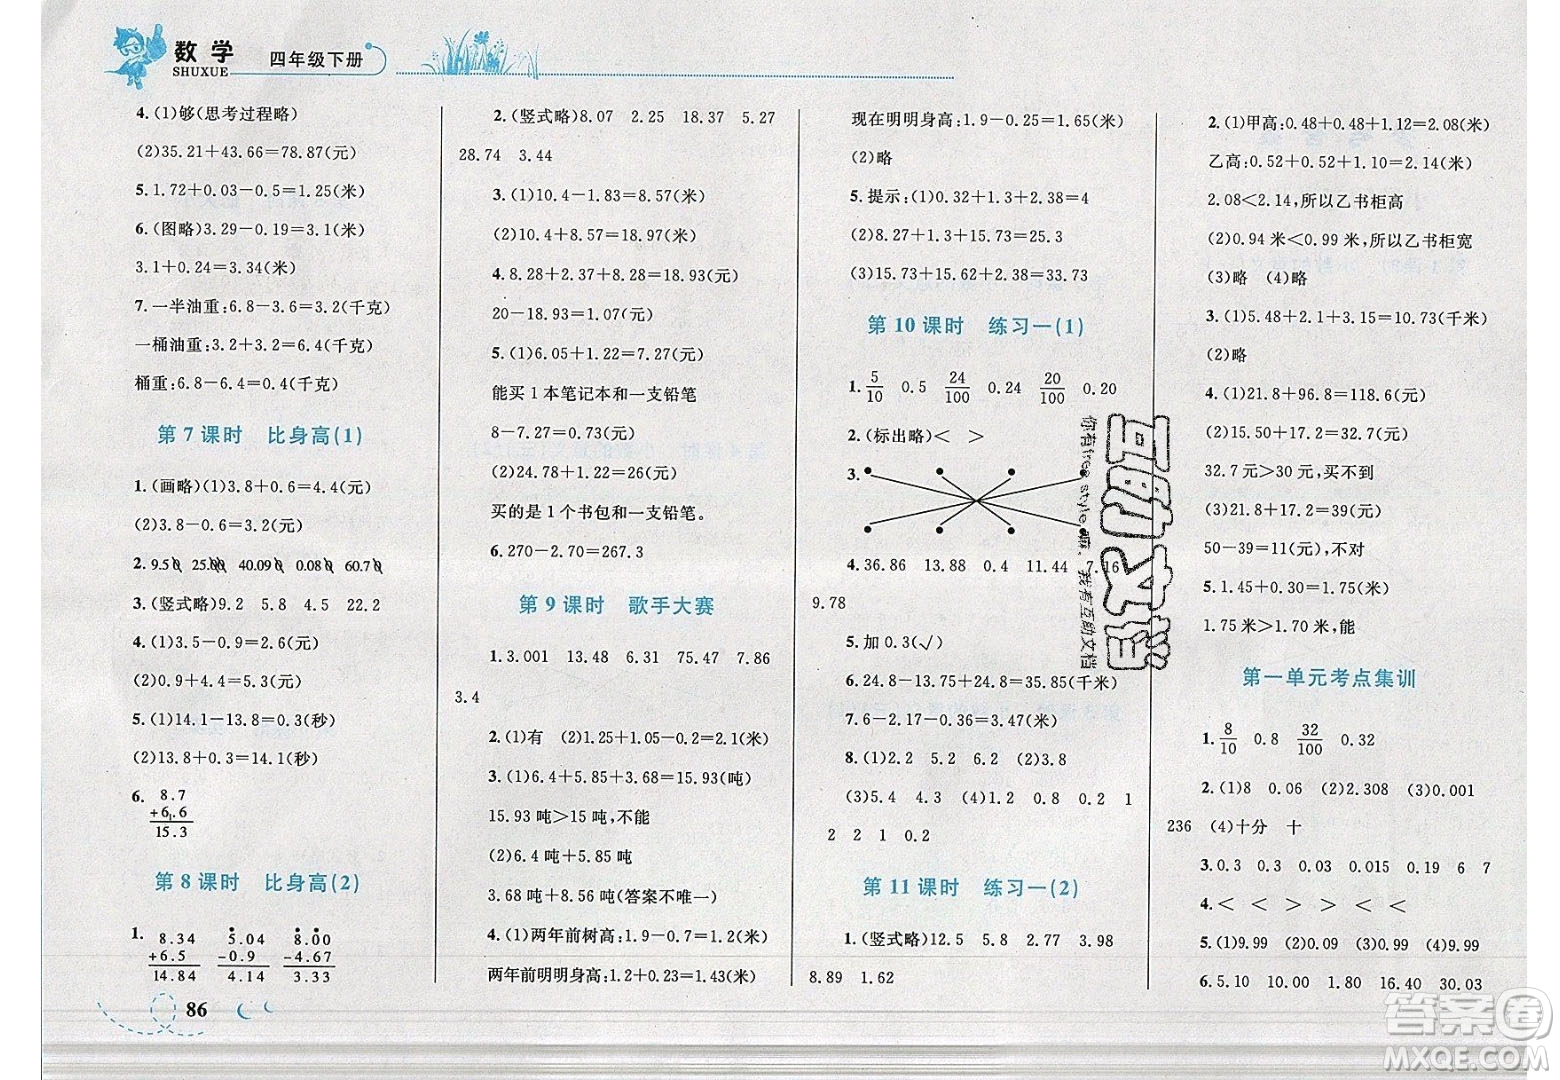 数学
SHUXUE
四年级下册
4.(1)够(思考过程略)
(2)35.21+43.66=78.87(元)
5.1.72+0.03-0.5=1.25(米)
6.(图略)3.29-0.19=3.1(米)
3.1+0.24=3.34(米)
7.一半油重:6.8-3.6=3.2(千克)
一桶油重:3.2+3.2=6.4(千克)
桶重:6.8-6.4=0.4(千克)
第7课时 比身高(1)
1.(画略)(1)3.8+0.6=4.4(元)
(2)3.8-0.6=3.2(元)
2.9.50 25.00 40.090 0.080 60.70
3.(竖式略)9.2 5.8 4.5 22.2
4.(1)3.5-0.9=2.6(元)
(2)0.9+4.4=5.3(元)
5.(1)14.1-13.8=0.3(秒)
(2)13.8+0.3=14.1(秒)
6. 8.7
+6.6
15.3
第8课时 比身高(2)
1. 8.34 5.04 8.00
+6.5 -0.9 -4.67
14.84 4.14 3.33
86
2.(竖式略)8.07 2.25 18.37 5.27
28.74 3.44
3.(1)10.4-1.83=8.57(米)
(2)10.4+8.57=18.97(米)
4.8.28+2.4+8.25=18.93(元)
20-18.93=1.07(元)
5.(1)6.05+1.22=7.27(元)
能买1本笔记本和一支铅笔
8-7.27=0.73(元)
(2)24.78+1.22=26(元)
买的是1个书包和一支铅笔。
6.270-2.70=267.3
第9课时 歌手大赛
1.3.001 13.48 6.31 75.47 7.86
3.4
2.(1)有 (2)1.25+1.05-0.2=2.1(米)
3.(1)6.4+5.85+3.68=15.93(吨)
15.93吨>15吨,不能
(2)6.4吨+5.85吨
3.68吨+8.56吨(答案不唯一)
4.(1)两年前树高:1.9-0.7=1.2(米)
两年前明明身高:1.2+0.23=1.43(米)
现在明明身高:1.9-0.25=1.65(米)
(2)略
5.提示:(1)0.32+1.3+2.38=4
(2)8.27+1.3+15.73=25.3
(3)15.73+15.62+2.38=33.73
第10课时 练习一(1)
1.5/10 0.5 24/100 0.24 20/100 0.20
2.(标出略)< >
3.
4.36.86 13.88 0.4 11.44 7.16
9.78
5.加0.3(√)
6.24.8-13.75+24.8=35.85(千米)
7.6-2.17-0.36=3.47(米)
8.(1)8.2 5.2 6.2 (2)3.8
(3)5.4 4.3 (4)1.2 0.8 0.2 1
2 2 1 0.2
第11课时 练习一(2)
1.(竖式略)12.5 5.8 2.77 3.98
8.89 1.62
2.(1)甲高:0.48+0.48+1.12=2.08(米)
乙高:0.52+0.52+1.1=2.14(米)
2.08<2.14,所以乙书柜高
(2)0.94米<0.99米,所以乙书柜宽
(3)略 (4)略
3.(1)5.48+2.1+3.15=10.73(千米)
(2)略
4.(1)21.8+96.8=118.6(元)
(2)15.9+16.8=32.7(元)
32.7元>30元,买不到
(3)21.8+17.2=39(元)
50-39=11(元),不对
5.1.45+0.30=1.75(米)
1.75米>1.70米,能
第一单元考点集训
1.8/10 0.8 32/100 0.32
2.(1)8 0.06 (2)2.308 (3)0.001
236 (4)十分 十
3.0.3 0.3 0.03 0.015 0.19 6 7
4.< < > > < <
5.(1)9.99 (2)0.09 (3)0.01 (4)9.99
6.5.21 0.30 1.80 16.40 30.03
互助文档
你有free style嘛，我有互助文档
答案圈
MXQE.COM